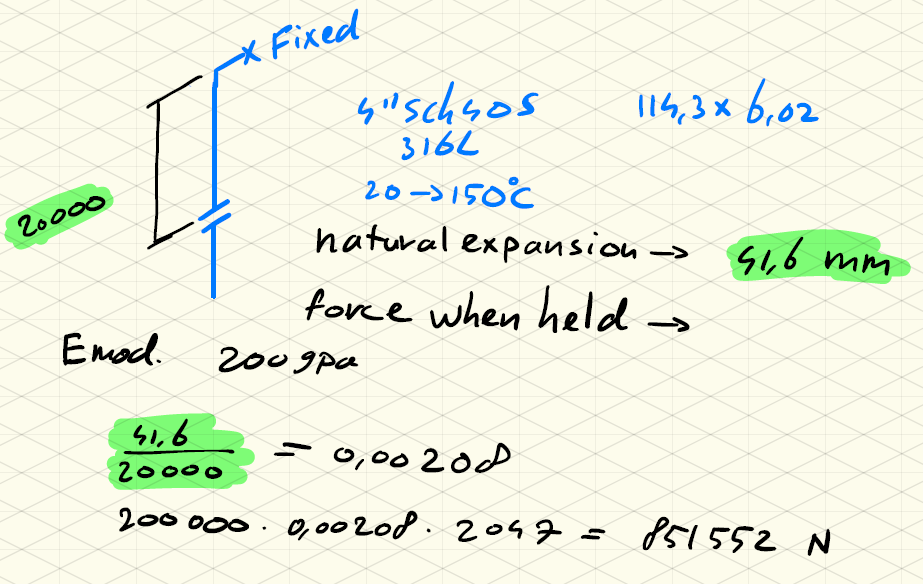 x Fixed
4" sch 40S 114,3 x 6,02
316L
20 → 150°C
20.000
natural expansion → 41,6 mm
force when held →
Emod. 200 gpa
41,6
20000
= 0,00208
200 000 · 0,00208 · 2047 = 851552 N